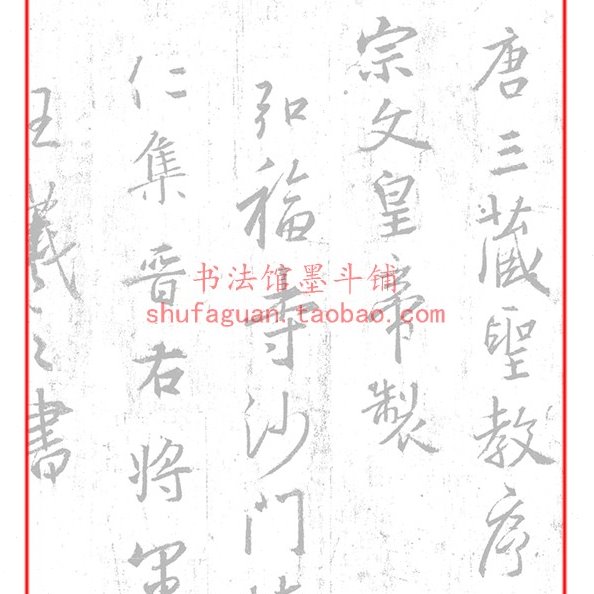 唐三藏聖教序
宗文皇帝製
弘福寺沙門
仁集晋右將軍
王羲之書
书法馆墨斗铺
shufaguan.taobao.com